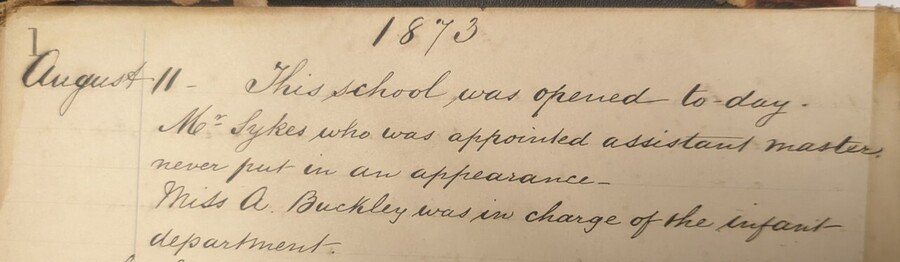 1873
1
August 11 - This school was opened to-day.
Mr Sykes who was appointed assistant master
never put in an appearance -
Miss A. Buckley was in charge of the infant
department.